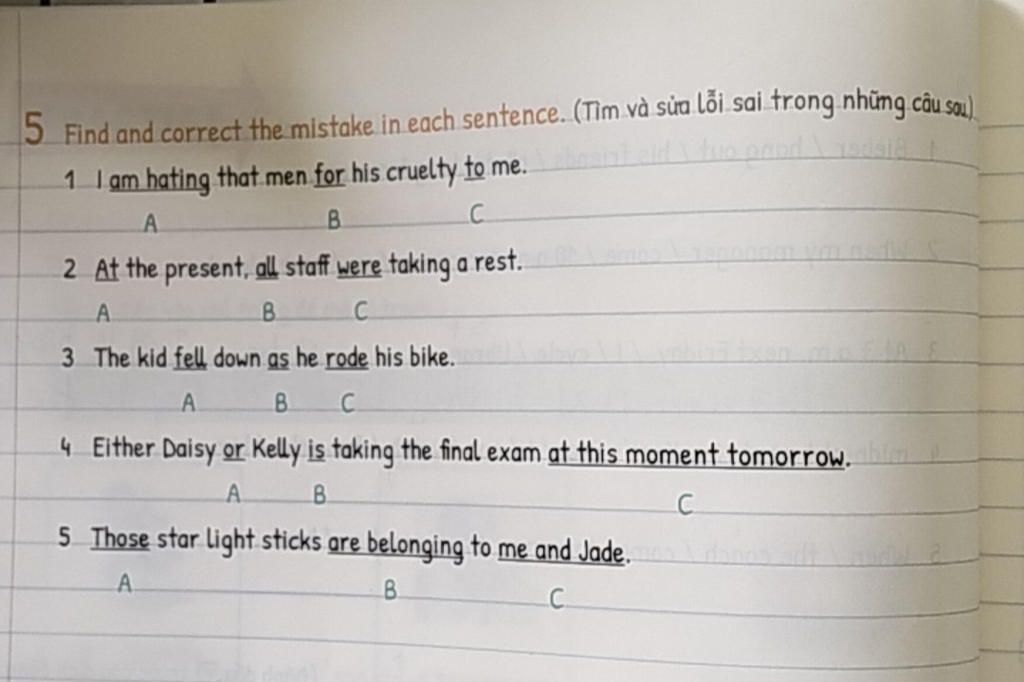 5 Find and correct the mistake in each sentence. (Tìm và sửa lỗi sai trong những câu sau)
1 I am hating that men for his cruelty to me.
A B C
2 At the present, all staff were taking a rest.
A B C
3 The kid fell down as he rode his bike.
A B C
4 Either Daisy or Kelly is taking the final exam at this moment tomorrow.
A B C
5 Those star light sticks are belonging to me and Jade.
A B C